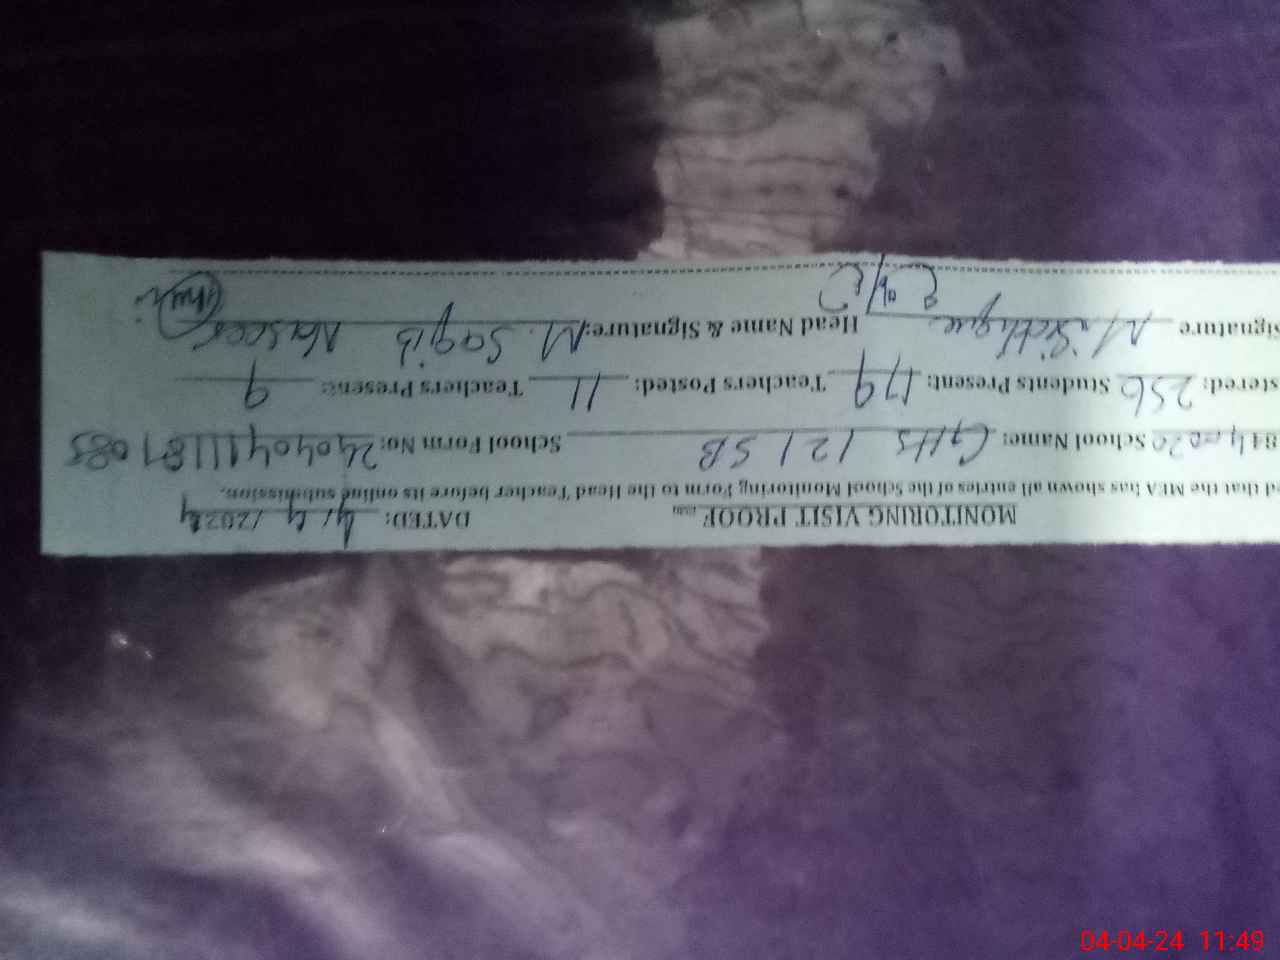 MONITORING VISIT PROOF DATED: 4/4/2024
ed that the MEA has shown all entries of the School Monitoring Form to the Head Teacher before its online submission.
School Name: GHS 121 SB School Form No:
stered: 256 Students Present: 179 Teachers Posted: 11 Teachers Present: 9
Signature Head Name & Signature: M. Saqib
04-04-24 11:49